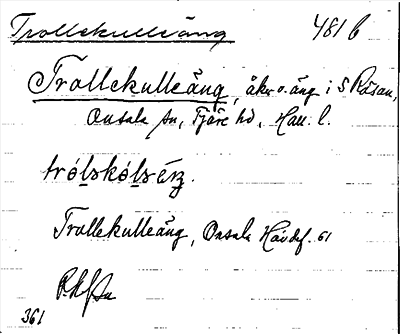 Trollekulleäng 481 b
Trollekulleäng, åker o. äng i S Råsan,
Onsala sn, Fjäre hd, Hall. l.
trólskólsérz.
Trollekulleäng, Onsala Hävdef. 61
361